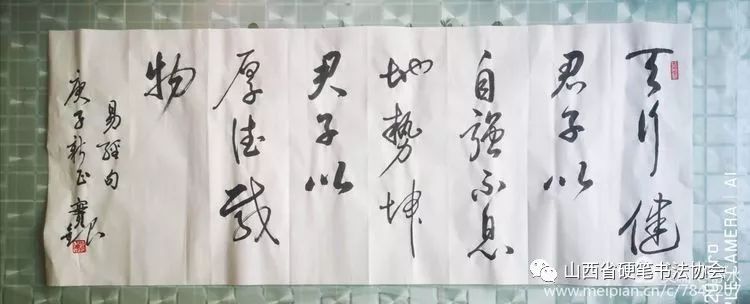 天行健
君子以
自强不息
地势坤
君子以
厚德载
物
易经句
庚子新正
山西省硬笔书法协会
www.meipian.cn/c/784
CAMERA | AI